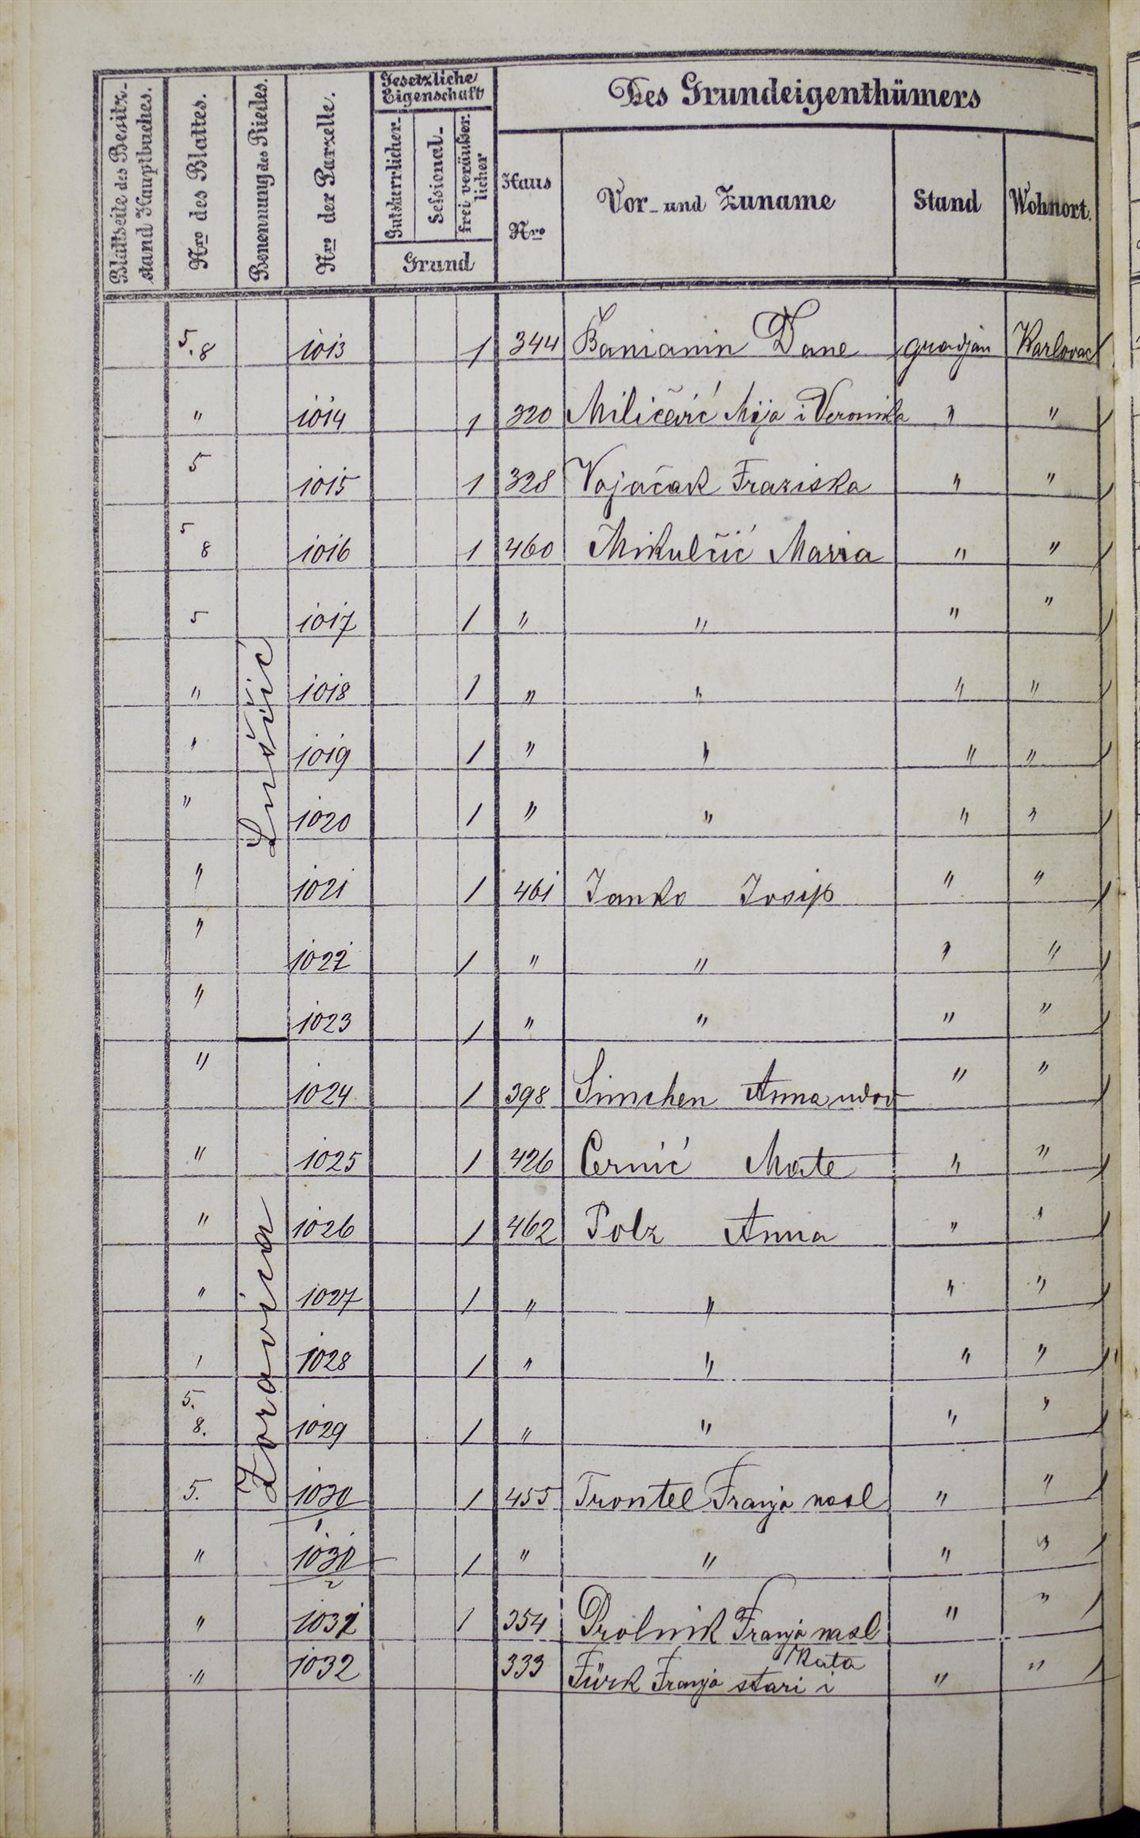 Blattseite des Besitz-
stand Hauptbuches.
Nro des Blattes.
Benennung des Riedes.
Nro der Parzelle.
Gesetzliche
Eigenschaft
Gutsherrlicher-
Sessional-
frei veräußer
licher
Grund
Des Grundeigenthümers
Haus
Nro
Vor- und Zuname
Stand
Wohnort.
5.8 1013 1 344 Banianin Dane gradjan Karlovac
" 1014 1 320 Miličević Mijo i Veronika " "
5 1015 1 328 Vojačak Fraziska " "
5 8 1016 1 460 Mikulčić Maria " "
5 1017 1 " " " "
" 1018 1 " " " "
" 1019 1 " " " "
" 1020 1 " " " "
Luščić
" 1021 1 461 Janko Josip " "
" 1022 1 " " " "
" 1023 1 " " " "
" 1024 1 398 Simchen Anna udov " "
" 1025 1 426 Cernić Mate " "
" 1026 1 462 Polz Anna " "
" 1027 1 " " " "
" 1028 1 " " " "
5. 8. 1029 1 " " " "
Zoravica
5. 1030/1 1 455 Trontel Franjo nasl " "
" 1030/2 1 " " " "
" 1031 1 354 Prolnik Franjo nasl " "
" 1032 333 Fürk Franjo stari i Kata " "